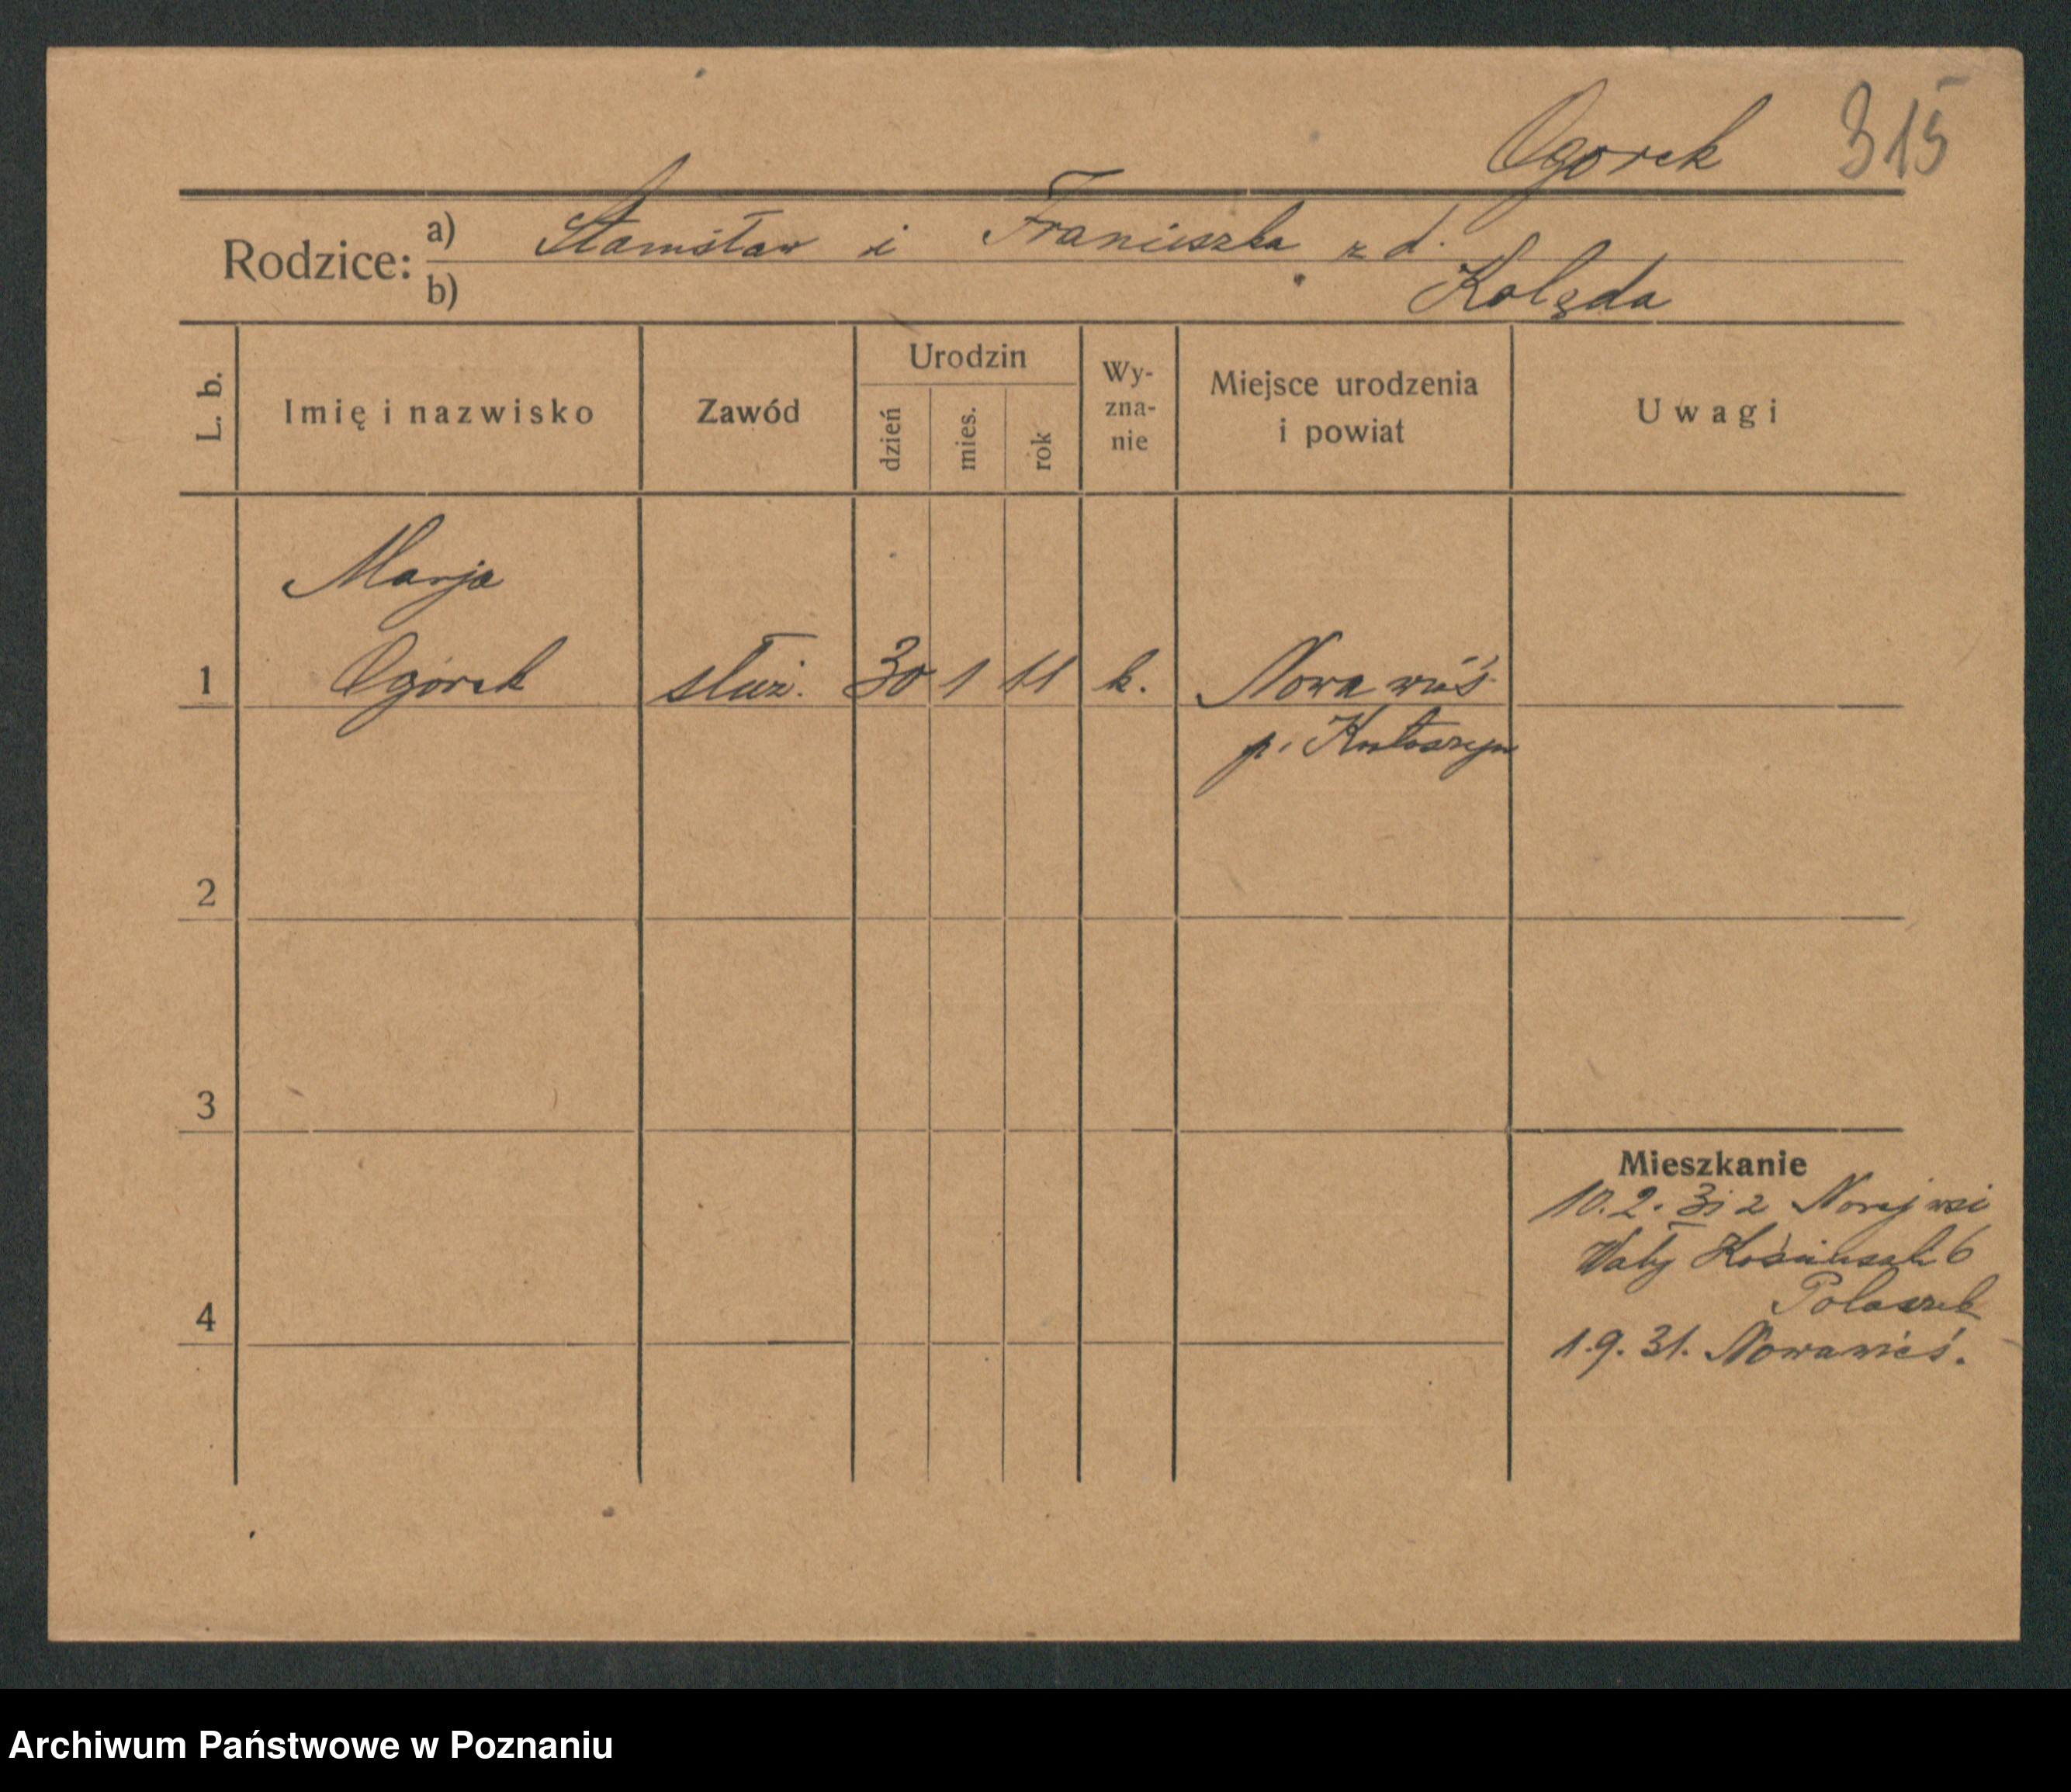 Ogorek 315
Rodzice: a) Stanisław i Franciszka z d.
b) Kolęda
L. b. Imię i nazwisko Zawód Urodzin dzień mies. rok Wy-zna-nie Miejsce urodzenia i powiat Uwagi
Marja
1 Ogórek służ. 30 1 11 k. Nowa wieś
p. Krotoszyn
2
3
Mieszkanie
10.2.31 z Nowej wsi
Wały Kościuszki 6
4 Polaszek
1.9.31. Nowawieś.
Archiwum Państwowe w Poznaniu